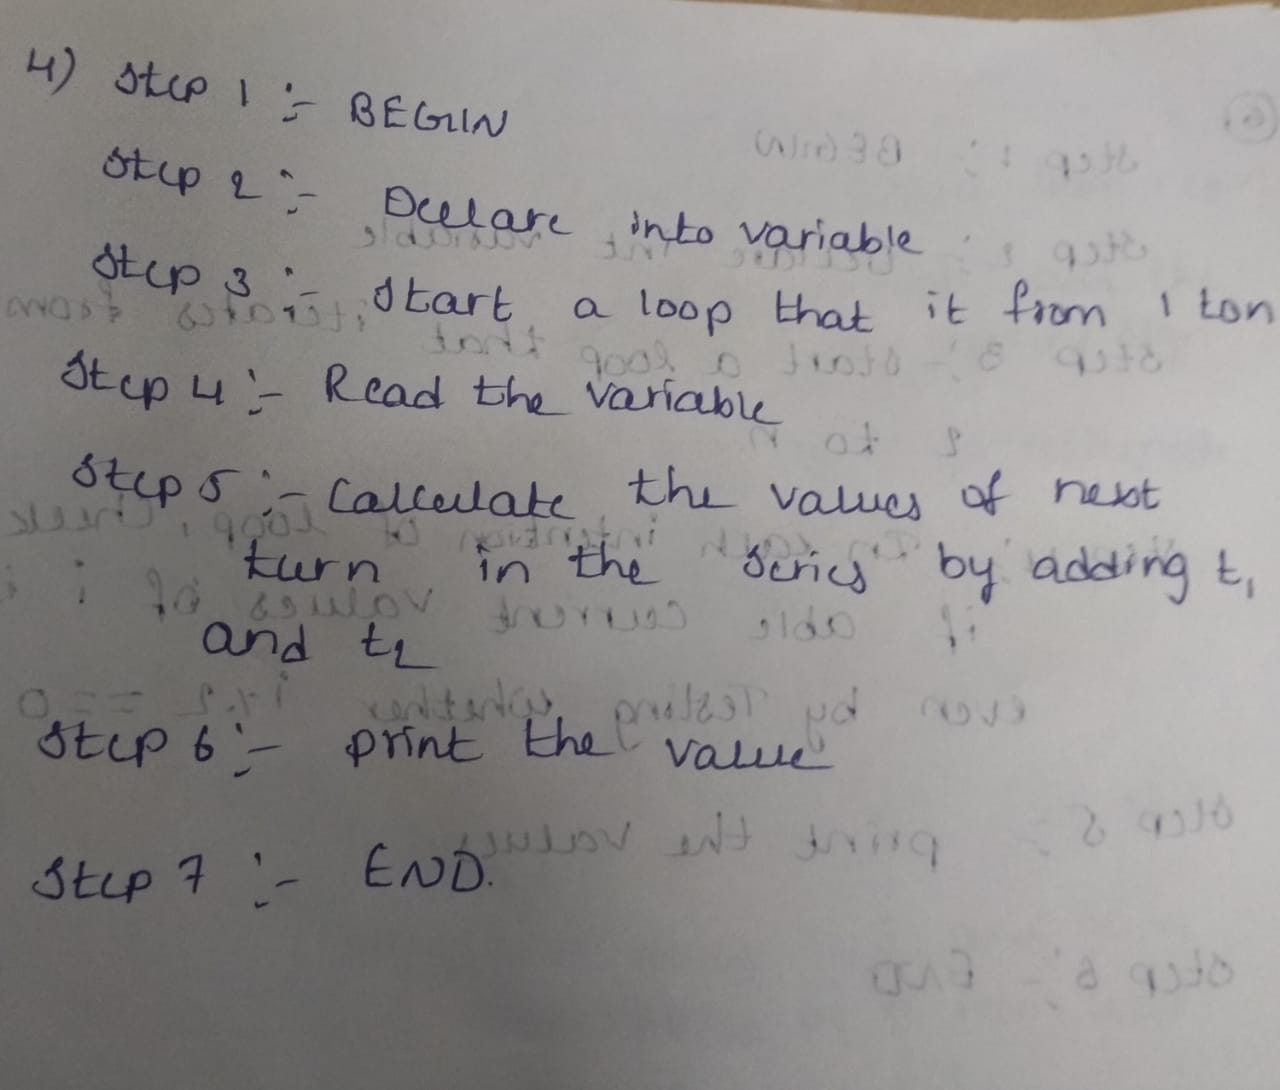 4) Step 1 :- BEGIN
Step 2 :- Declare into variable
Step 3 :- Start a loop that it from 1 ton
Step 4 :- Read the variable
Step 5 :- Calculate the values of next
turn in the series by adding t1
and t2
Step 6 :- print the value
Step 7 :- END.